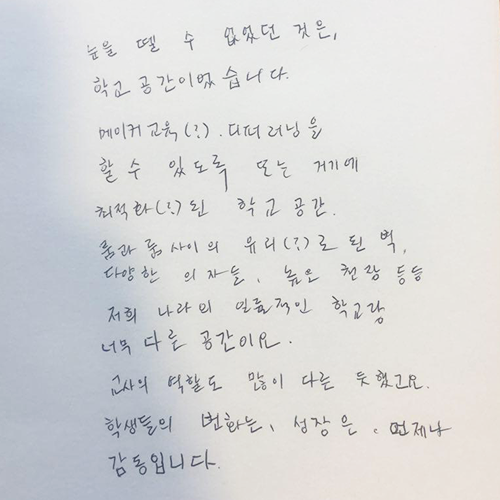 눈을 뗄 수 없었던 것은,
학교 공간이었습니다.
메이커 교육(?). 디퍼러닝을
할 수 있도록 또는 거기에
최적화(?)된 학교 공간.
룸과 룸 사이의 유리(?)로 된 벽,
다양한 의자들, 높은 천장 등등
저희 나라의 일률적인 학교랑
너무 다른 공간이요.
교사의 역할도 많이 다른 듯했고요.
학생들의 변화는, 성장은, 언제나
감동입니다.